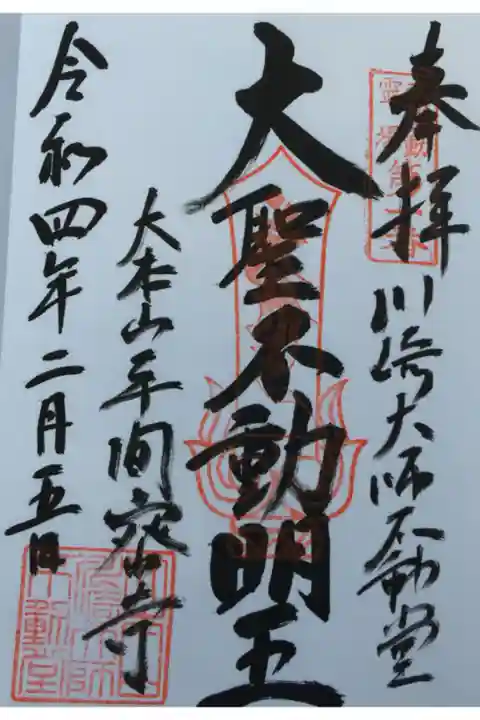 奉拝
川崎大師不動堂
大聖不動明王
大本山平間密寺
令和四年二月五日